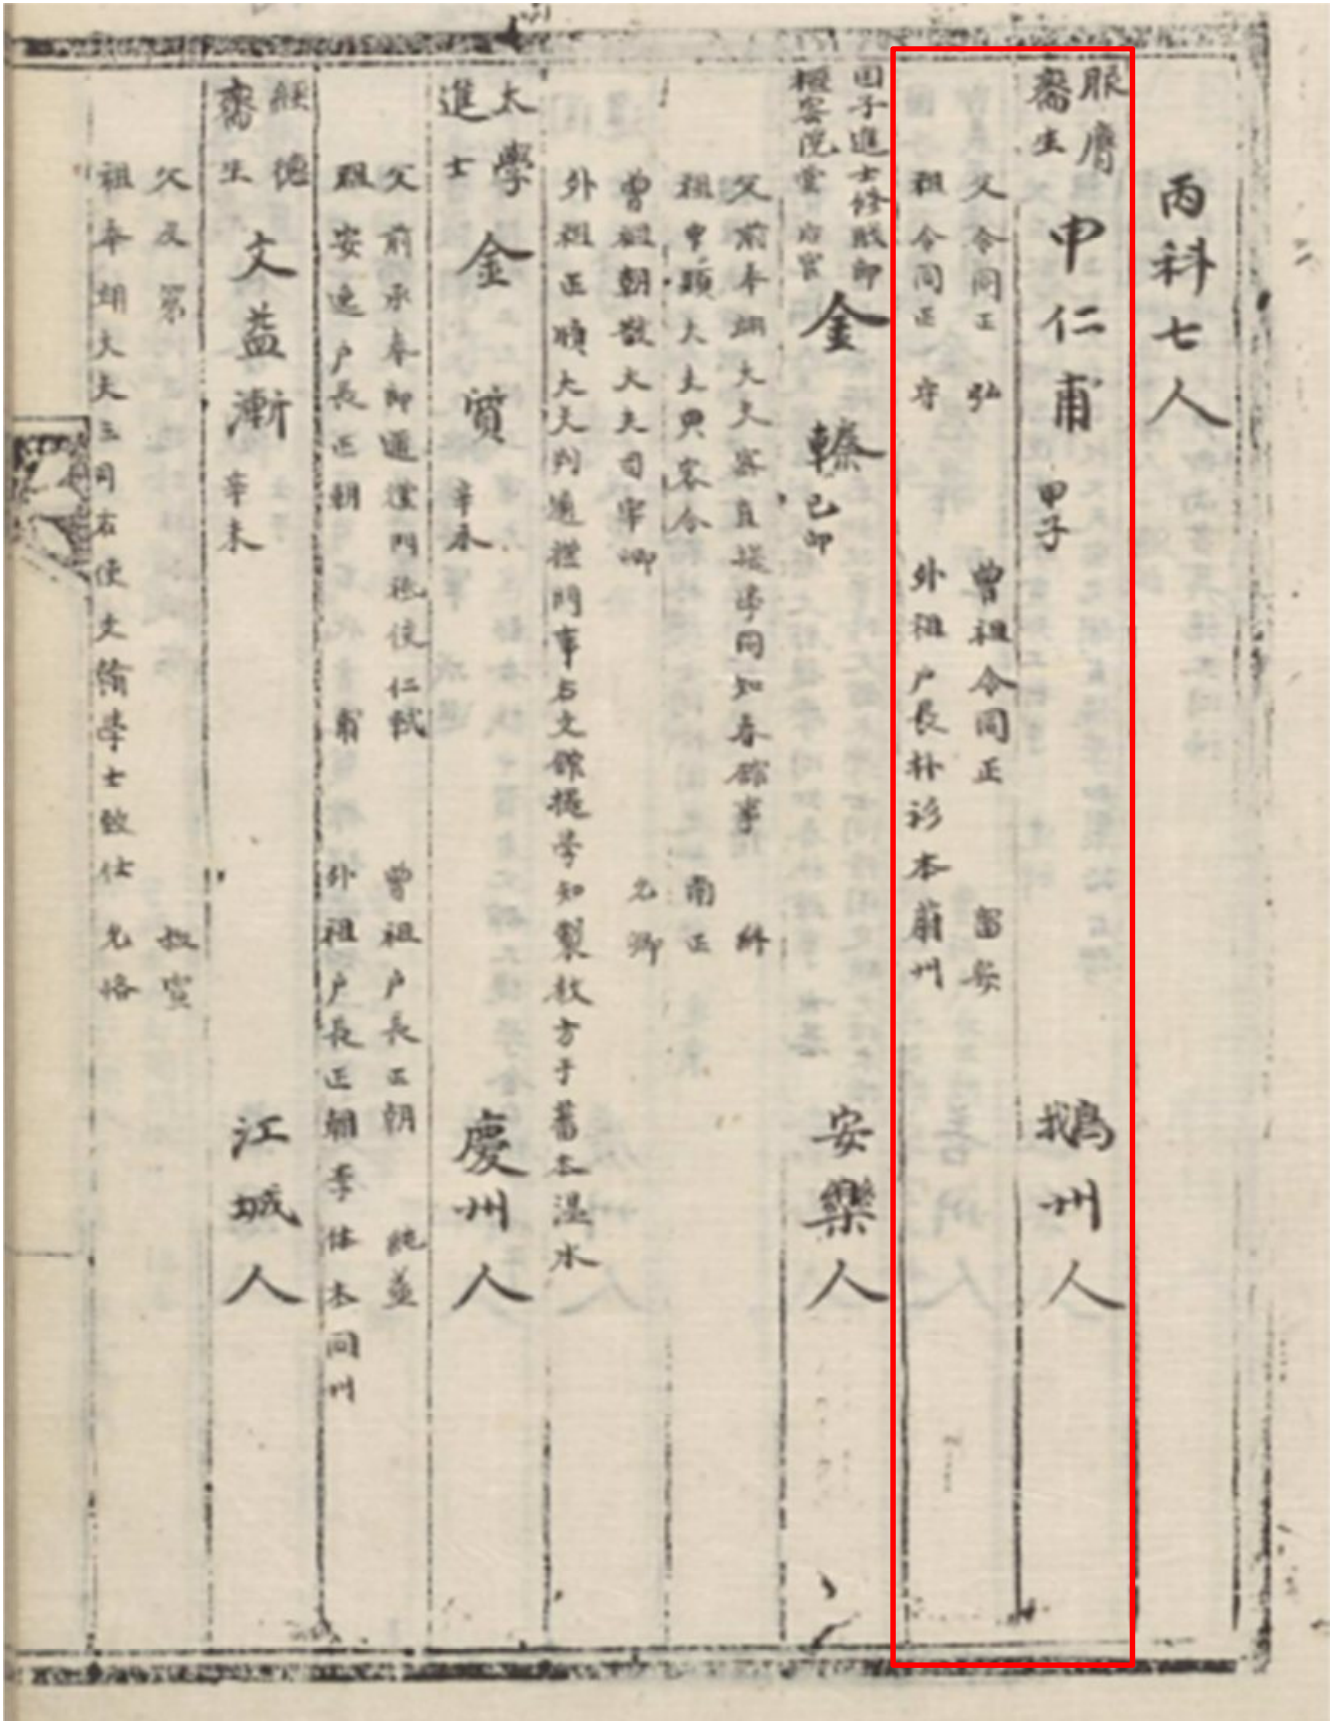 丙科七人
服膺
齋生
申仁甫 甲子 鵝州人
父令同正 弘 曾祖令同正 富安
祖令同正 守 外祖户長朴衫本蔚州
国子進士修職郎
權客院堂后官
金轃 己卯 安樂人
父前奉翊大夫密直提學同知春館事
祖中顯大夫典客令 南正
曾祖朝散大夫司宰卿 允卿
外祖正順大夫判通禮門事右文館提學知製教方于蕃本温水
太學
進士
金質 辛未 慶州人
父前承奉郎通禮門祗侯仁軾 曾祖户長正朝 純並
祖安逸户長正朝 甯 外祖户長正朝李体本同州
經德
齋生
文益漸 辛未 江城人
父及第 叔宣
祖奉翊大夫三司右使文翰學士致仕 允恪